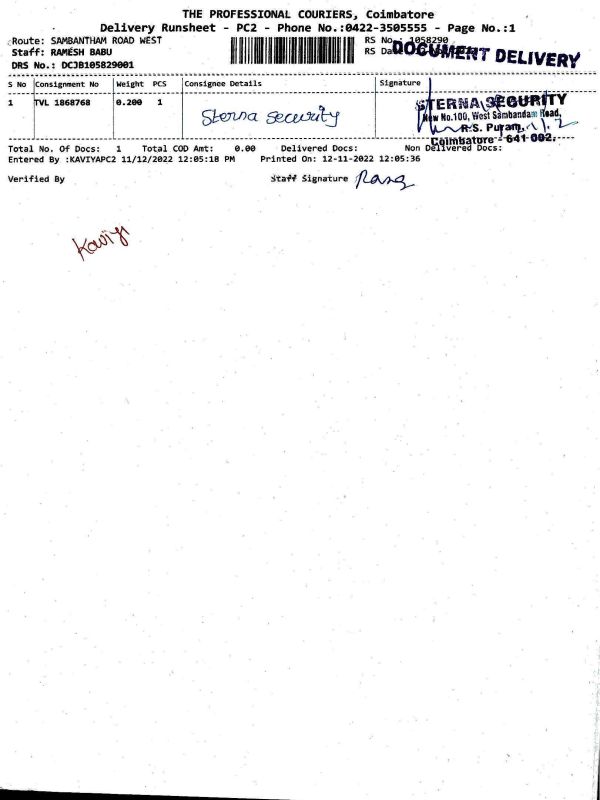 THE PROFESSIONAL COURIERS, Coimbatore
Delivery Runsheet - PC2 - Phone No.:0422-3505555 - Page No.:1
Route: SAMBANTHAM ROAD WEST RS No.: 1058290
Staff: RAMESH BABU RS Da DOCUMENT DELIVERY
DRS No.: DCJB105829001
S No Consignment No Weight PCS Consignee Details Signature
1 TVL 1868768 0.200 1 Sterna security STERNA SEGURITY
New No.100, West Sambandam Road,
R.S. Puram,
Coimbatore - 641 002.
Total No. Of Docs: 1 Total COD Amt: 0.00 Delivered Docs: Non Delivered Docs:
Entered By :KAVIYAPC2 11/12/2022 12:05:18 PM Printed On: 12-11-2022 12:05:36
Verified By Staff Signature